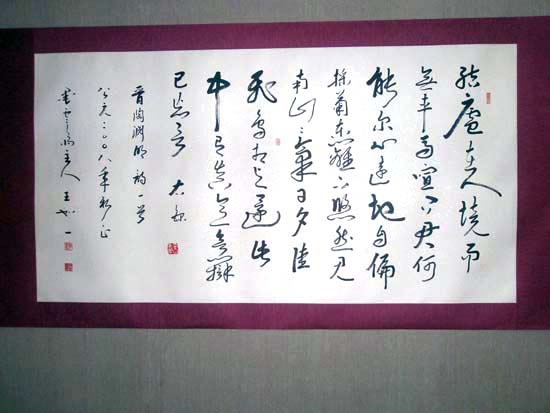 結廬在人境而
無車馬喧問君何
能尔心遠地自偏
採菊东籬下悠然見
南山山氣日夕佳
飛鳥相与還此
中有真意欲辯
已忘言 右録
晋陶渊明詩一首
公元二〇〇八年
主人 王 一